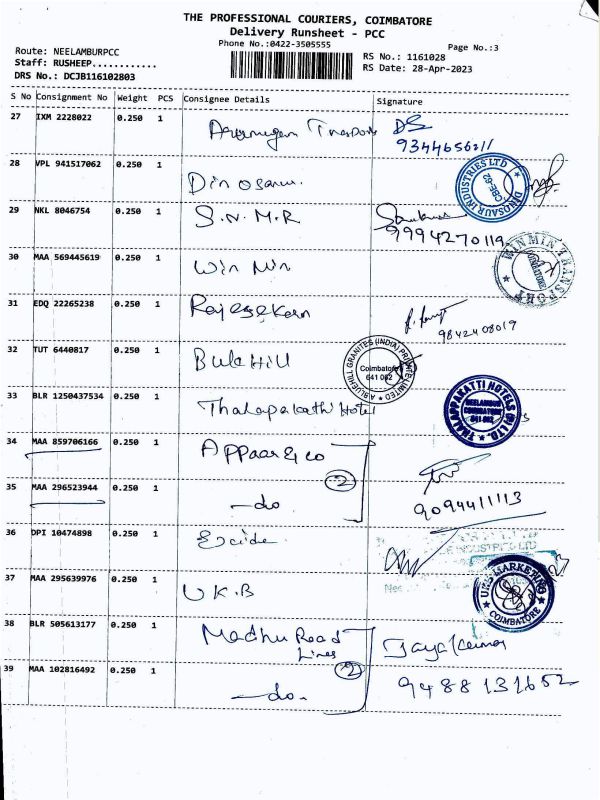 THE PROFESSIONAL COURIERS, COIMBATORE
Delivery Runsheet - PCC
Phone No.:0422-3505555
Page No.:3
Route: NEELAMBURPCC
Staff: RUSHEEP............
DRS No.: DCJB116102803
RS No.: 1161028
RS Date: 28-Apr-2023
S No Consignment No Weight PCS Consignee Details Signature
27 IXM 2228022 0.250 1
9344656211
28 VPL 941517062 0.250 1 Dinosaur
DINOSAUR INDUSTRIES LTD CBE-62
29 NKL 8046754 0.250 1 S.N.M.R
9994270119
30 MAA 569445619 0.250 1 Win Min
WINMIN TRANSPORT
31 EDQ 22265238 0.250 1 Rajesekaran
9842408019
32 TUT 6440817 0.250 1 Bule Hill
A BLUEHILL GRANITES (INDIA) PRIVATE LIMITED Coimbatore 641 062
33 BLR 1250437534 0.250 1 Thalapakathi Hotel
THALAPPAKATTI HOTELS (P) LTD. NEELAMBUR COIMBATORE 641 062
34 MAA 859706166 0.250 1 Appaar & co
2
35 MAA 296523944 0.250 1 -do
9094411113
36 DPI 10474898 0.250 1 Excide
37 MAA 295639976 0.250 1 U K B
UKB MARKETING COIMBATORE
38 BLR 505613177 0.250 1 Madhu Road
Lines
2
Jayakumar
39 MAA 102816492 0.250 1 -do.
9488131652